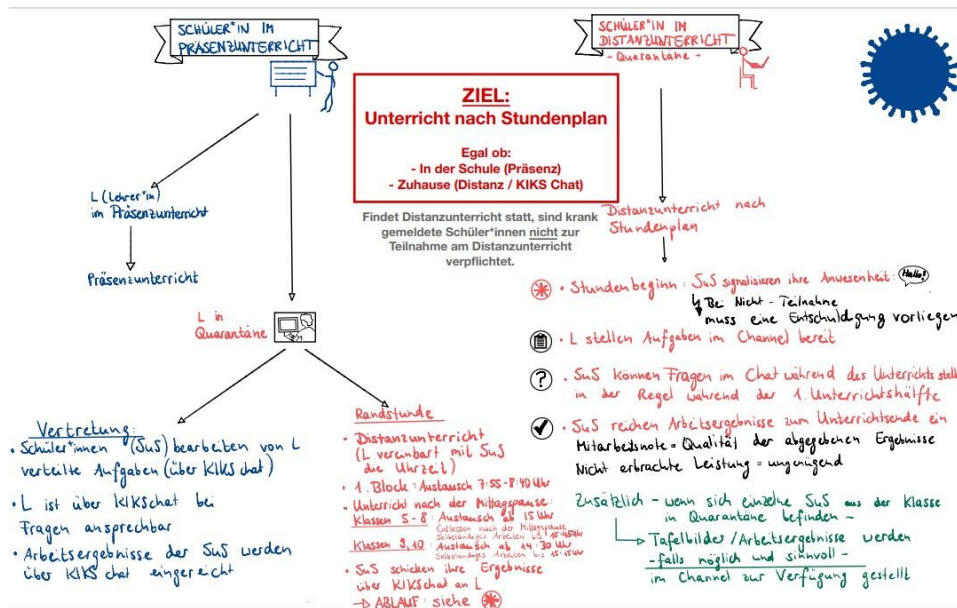 SCHÜLER*IN IM
PRÄSENZUNTERRICHT
SCHÜLER*IN IM
DISTANZUNTERRICHT
- Quarantäne -
ZIEL:
Unterricht nach Stundenplan
Egal ob:
- In der Schule (Präsenz)
- Zuhause (Distanz / KIKS Chat)
Findet Distanzunterricht statt, sind krank
gemeldete Schüler*innen nicht zur
Teilnahme am Distanzunterricht
verpflichtet.
L (Lehrer*in)
im Präsenzunterricht
Präsenzunterricht
L in
Quarantäne
Vertretung:
• Schüler*innen (SuS) bearbeiten von L
verteilte Aufgaben (über KIKS chat)
• L ist über KIKSchat bei
Fragen ansprechbar
• Arbeitsergebnisse der SuS werden
über KIKS chat eingereicht
Randstunde
• Distanzunterricht
(L vereinbart mit SuS
die Uhrzeit)
• 1. Block: Austausch 7:55-8:40 Uhr
• Unterricht nach der Mittagspause:
Klassen 5-8: Austausch ab 15 Uhr
Entlassen nach der Mittagspause
Selbständiges Arbeiten bis 15:45 Uhr
Klassen 9,10: Austausch ab 14:30 Uhr
Selbständiges Arbeiten bis 15:15 Uhr
• SuS schicken ihre Ergebnisse
über KIKSchat an L
→ ABLAUF: siehe
Distanzunterricht nach
Stundenplan
• Stundenbeginn: SuS signalisieren ihre Anwesenheit: Hallo!
↳ Bei Nicht-Teilnahme
muss eine Entschuldigung vorliegen
• L stellen Aufgaben im Channel bereit
? • SuS können Fragen im Chat während des Unterrichts stell
in der Regel während der 1. Unterrichtshälfte
• SuS reichen Arbeitsergebnisse zum Unterrichtsende ein
Mitarbeitsnote = Qualität der abgegebenen Ergebnisse
Nicht erbrachte Leistung = ungenügend
Zusätzlich - wenn sich einzelne SuS aus der Klasse
in Quarantäne befinden -
→ Tafelbilder/Arbeitsergebnisse werden
- falls möglich und sinnvoll -
im Channel zur Verfügung gestellt